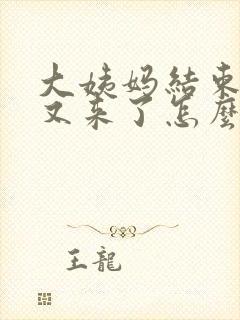 大姨妈結束
又来了怎麼
王龍